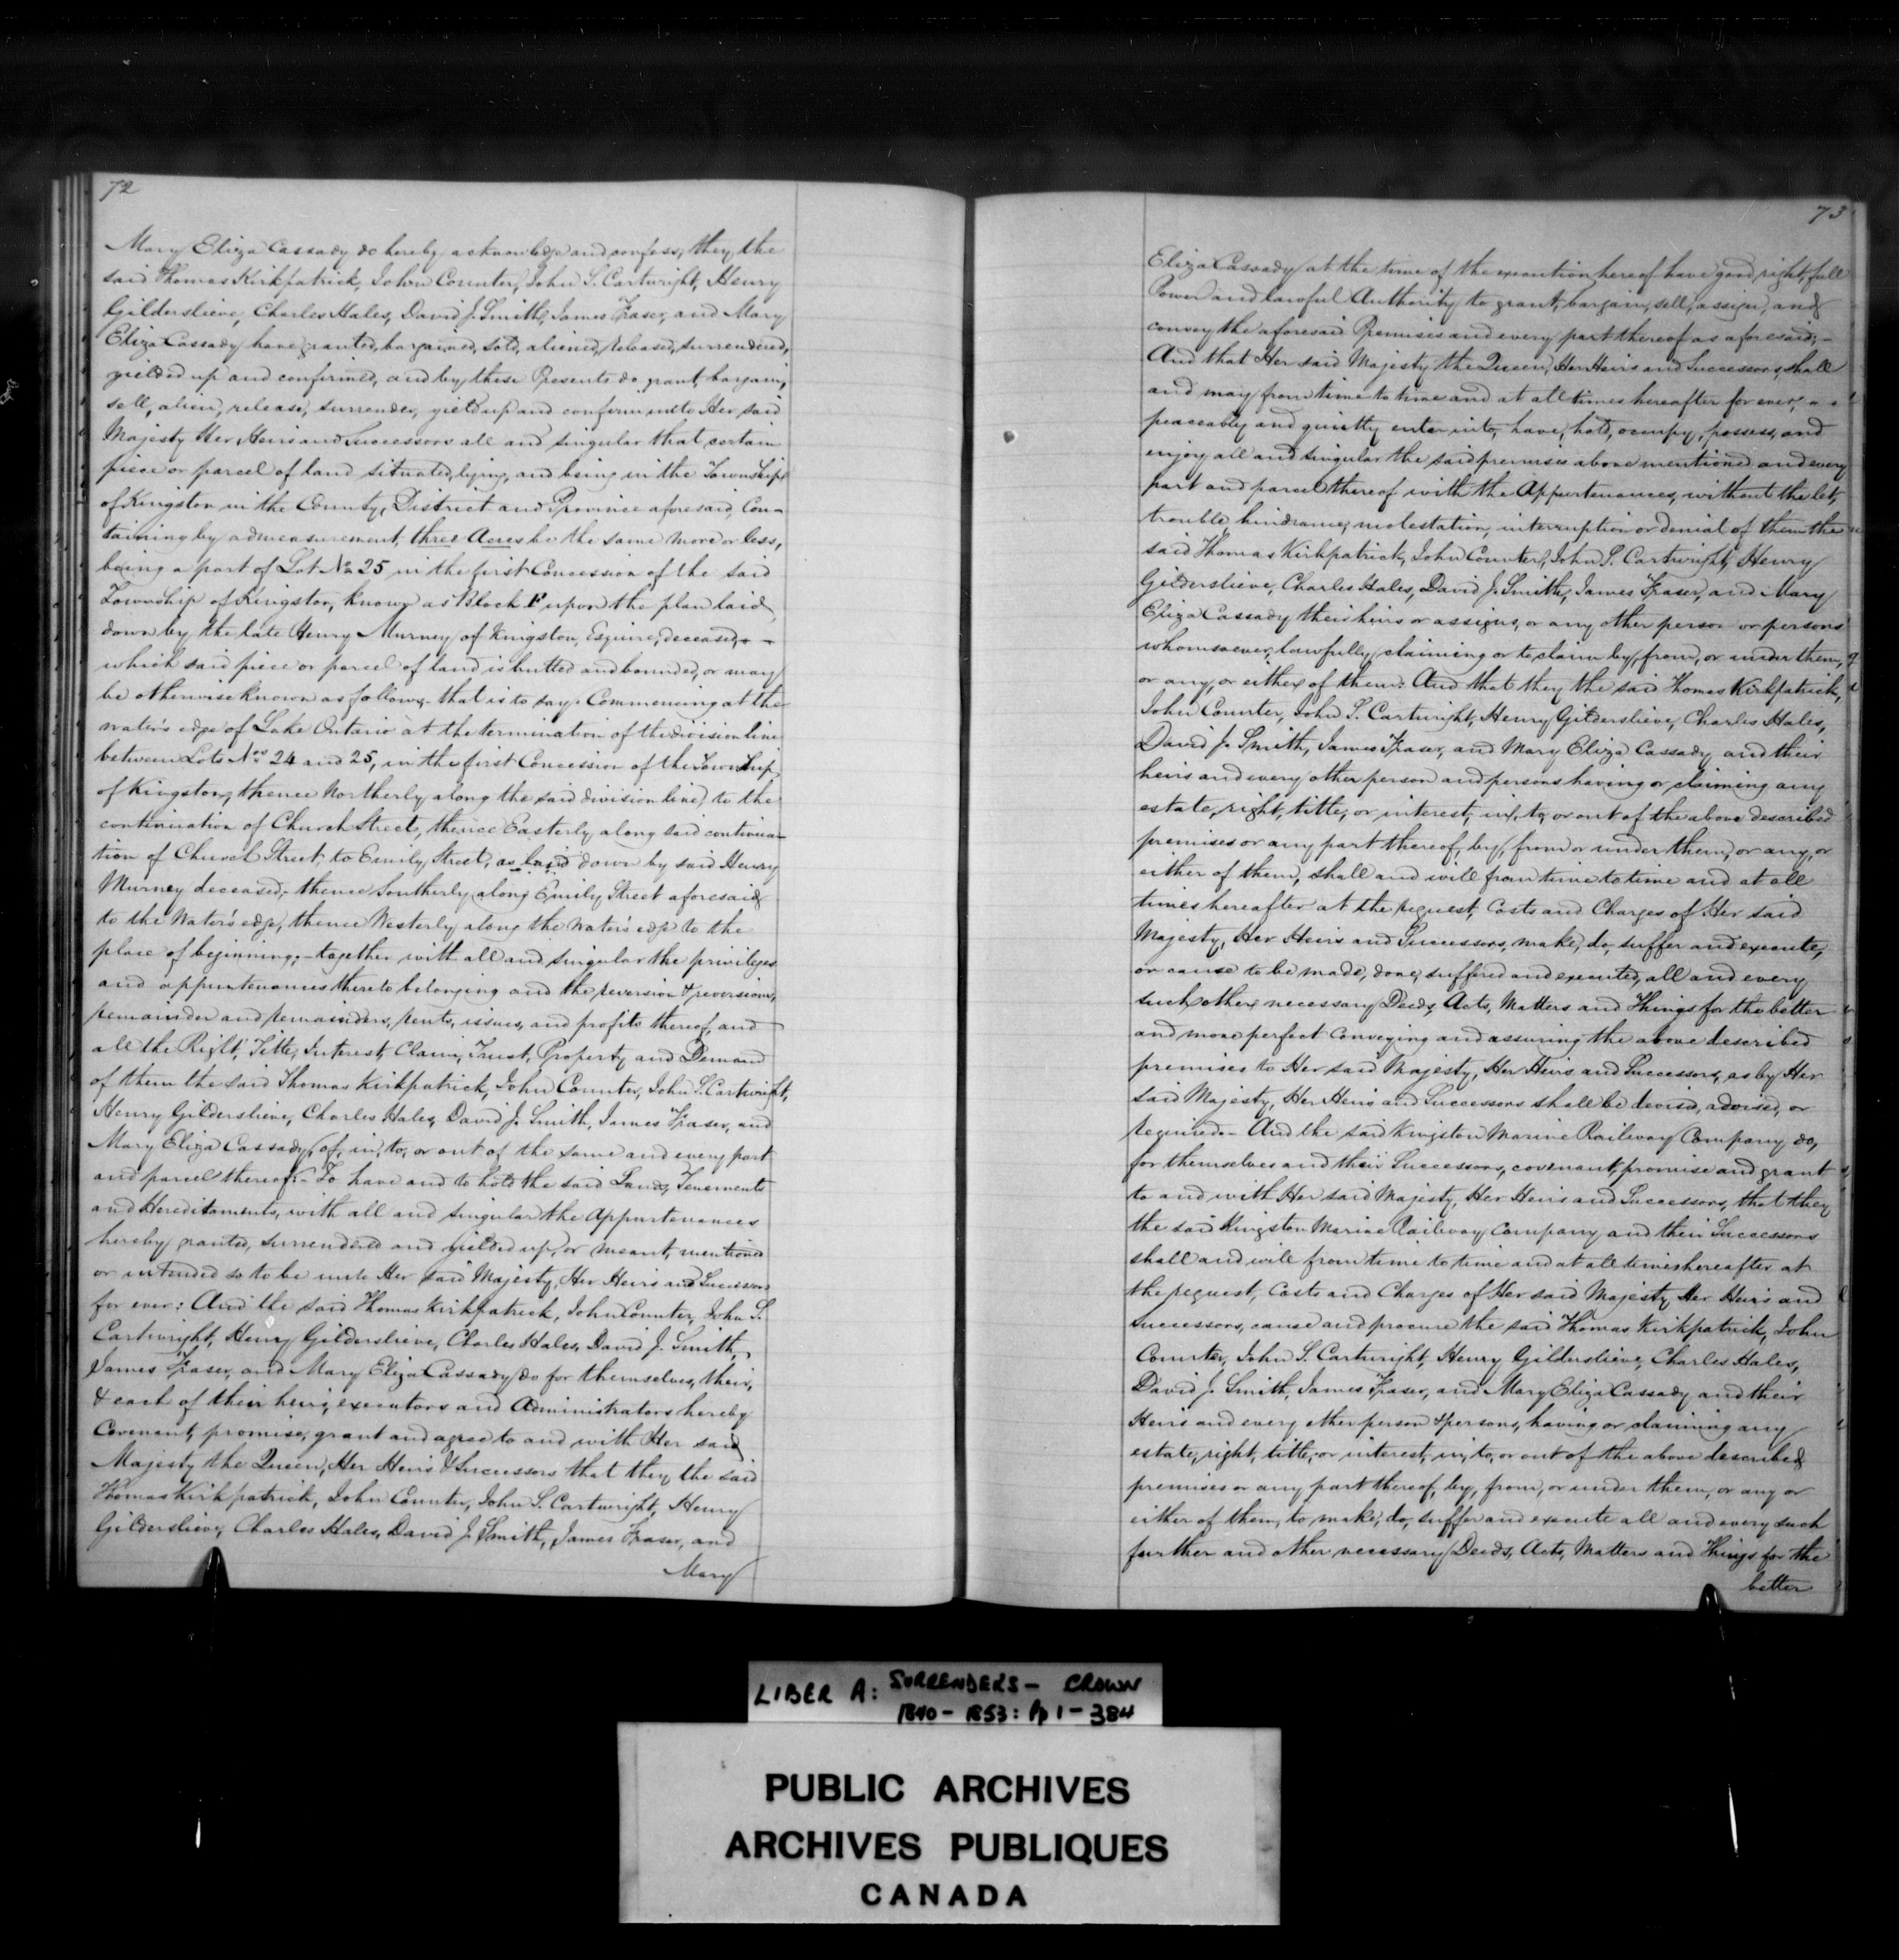 72
Mary Eliza Cassady do hereby acknowledge and confess, they the
said Thomas Kirkpatrick, John Counter, John S. Cartwright, Henry
Gilderslieve, Charles Hales, David J. Smith, James Fraser, and Mary
Eliza Cassady have granted, bargained, sold, aliened, released, surrendered,
yielded up and confirmed, and by these Presents do grant, bargain,
sell, alien, release, surrender, yield up and confirm unto Her said
Majesty Her Heirs and Successors all and singular that certain
piece or parcel of land situated, lying, and being in the Township
of Kingston in the County, District and Province aforesaid, Con-
taining by admeasurement, three Acres be the same more or less,
being a part of Lot No. 25 in the first Concession of the said
Township of Kingston, known as Block F upon the plan laid
down by the late Henry Murney of Kingston, Esquire, deceased, - -
which said piece or parcel of land is butted and bounded, or may
be otherwise known as follows, that is to say: Commencing at the
water's edge of Lake Ontario at the termination of the division line
between Lots Nos. 24 and 25, in the first Concession of the Township
of Kingston, thence Northerly along the said division line, to the
continuation of Church Street, thence Easterly along said continua-
tion of Church Street, to Emily Street, as laid down by said Henry
Murney deceased, thence Southerly along Emily Street aforesaid
to the Water's edge, thence Westerly along the Water's edge to the
place of beginning; - together with all and singular the privileges
and appurtenances thereto belonging and the reversion & reversions,
remainder and remainders, rents, issues, and profits thereof, and
all the Right, Title, Interest, Claim, Trust, Property and Demand
of them the said Thomas Kirkpatrick, John Counter, John S. Cartwright,
Henry Gilderslieve, Charles Hales, David J. Smith, James Fraser, and
Mary Eliza Cassady, of, in, to, or out of the same and every part
and parcel thereof: - To have and to hold the said Lands, Tenements
and Hereditaments, with all and singular the Appurtenances
hereby granted, surrendered and yielded up, or meant, mentioned
or intended so to be unto Her said Majesty, Her Heirs and Successors
for ever: And the said Thomas Kirkpatrick, John Counter, John S.
Cartwright, Henry Gilderslieve, Charles Hales, David J. Smith,
James Fraser, and Mary Eliza Cassady do for themselves, their,
& each of their heirs, executors and Administrators hereby
Covenant, promise, grant and agree to and with Her said
Majesty the Queen, Her Heirs & Successors that they the said
Thomas Kirkpatrick, John Counter, John S. Cartwright, Henry
Gilderslieve, Charles Hales, David J. Smith, James Fraser, and
Mary
73
Eliza Cassady at the time of the execution hereof have good right, full
Power and lawful Authority to grant, bargain, sell, assign, and
convey the aforesaid Premises and every part thereof as aforesaid; -
And that Her said Majesty the Queen, Her Heirs and Successors, shall
and may from time to time and at all times hereafter for ever, - -
peaceably and quietly enter into, have, hold, occupy, possess, and
enjoy all and singular the said premises above mentioned and every
part and parcel thereof with the Appurtenances, without the let,
trouble, hindrance, molestation, interruption or denial of them the
said Thomas Kirkpatrick, John Counter, John S. Cartwright, Henry
Gilderslieve, Charles Hales, David J. Smith, James Fraser, and Mary
Eliza Cassady their heirs or assigns, or any other person or persons
whomsoever, lawfully claiming or to claim by, from, or under them,
or any, or either of them: And that they the said Thomas Kirkpatrick,
John Counter, John S. Cartwright, Henry Gilderslieve, Charles Hales,
David J. Smith, James Fraser, and Mary Eliza Cassady and their
heirs and every other person and persons having or claiming any
estate, right, title, or interest, in, to, or out of the above described
premises or any part thereof, by, from or under them, or any, or
either of them, shall and will from time to time and at all
times hereafter at the request, Costs and Charges of Her said
Majesty, Her Heirs and Successors, make, do, suffer and execute,
or cause to be made, done, suffered and executed, all and every
such other necessary Deeds, Acts, Matters and Things for the better
and more perfect Conveying and assuring the above described
premises to Her said Majesty, Her Heirs and Successors, as by Her
said Majesty, Her Heirs and Successors shall be devised, advised, or
required. - And the said Kingston Marine Railway Company do,
for themselves and their Successors, covenant, promise and grant
to and with Her said Majesty, Her Heirs and Successors, that they
the said Kingston Marine Railway Company and their Successors
shall and will from time to time and at all times hereafter at
the request, Costs and Charges of Her said Majesty Her Heirs and
Successors, cause and procure the said Thomas Kirkpatrick, John
Counter, John S. Cartwright, Henry Gilderslieve, Charles Hales,
David J. Smith, James Fraser, and Mary Eliza Cassady and their
Heirs and every other person & persons, having or claiming any
estate, right, title, or interest, in, to, or out of the above described
premises or any part thereof, by, from, or under them, or any or
either of them, to make, do, suffer and execute all and every such
further and other necessary Deeds, Acts, Matters and Things for the
better
LIBER A: SURRENDERS - CROWN
1840 - 1853: Pp 1 - 384
PUBLIC ARCHIVES
ARCHIVES PUBLIQUES
CANADA